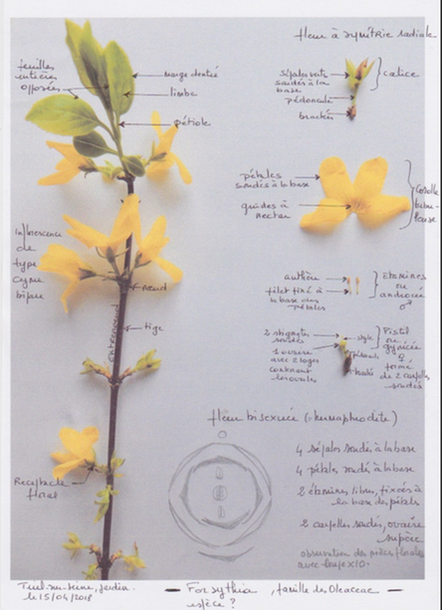 fleur à symétrie radiale
feuilles
entières
opposées
marge dentée
limbe
pétiole
sépales verts
soudés à la
base
calice
pédoncule
bractées
pétales
soudés à la base
guides à
nectar
Corolle
Inflorescence
de
type
cyme
bipare
nœud
entrenœud
tige
anthère
filet fixé à
la base des
pétales
Etamines
ou
androcée
♂
2 stigmates
soudés
1 ovaire
avec 2 loges
contenant
les ovules
style
Pistil
ou
gynécée
♀
formé
de 2 carpelles
soudés
Réceptacle
floral
fleur bisexuée (hermaphrodite)
4 sépales soudés à la base
4 pétales soudés à la base
2 étamines libres, fixées à
la base des pétales
2 carpelles soudés, ovaire
supère
observation des pièces florales
avec loupe x10.
jardin
le 15/04/2018
— Forsythia, famille des Oleaceae —
espèce ?